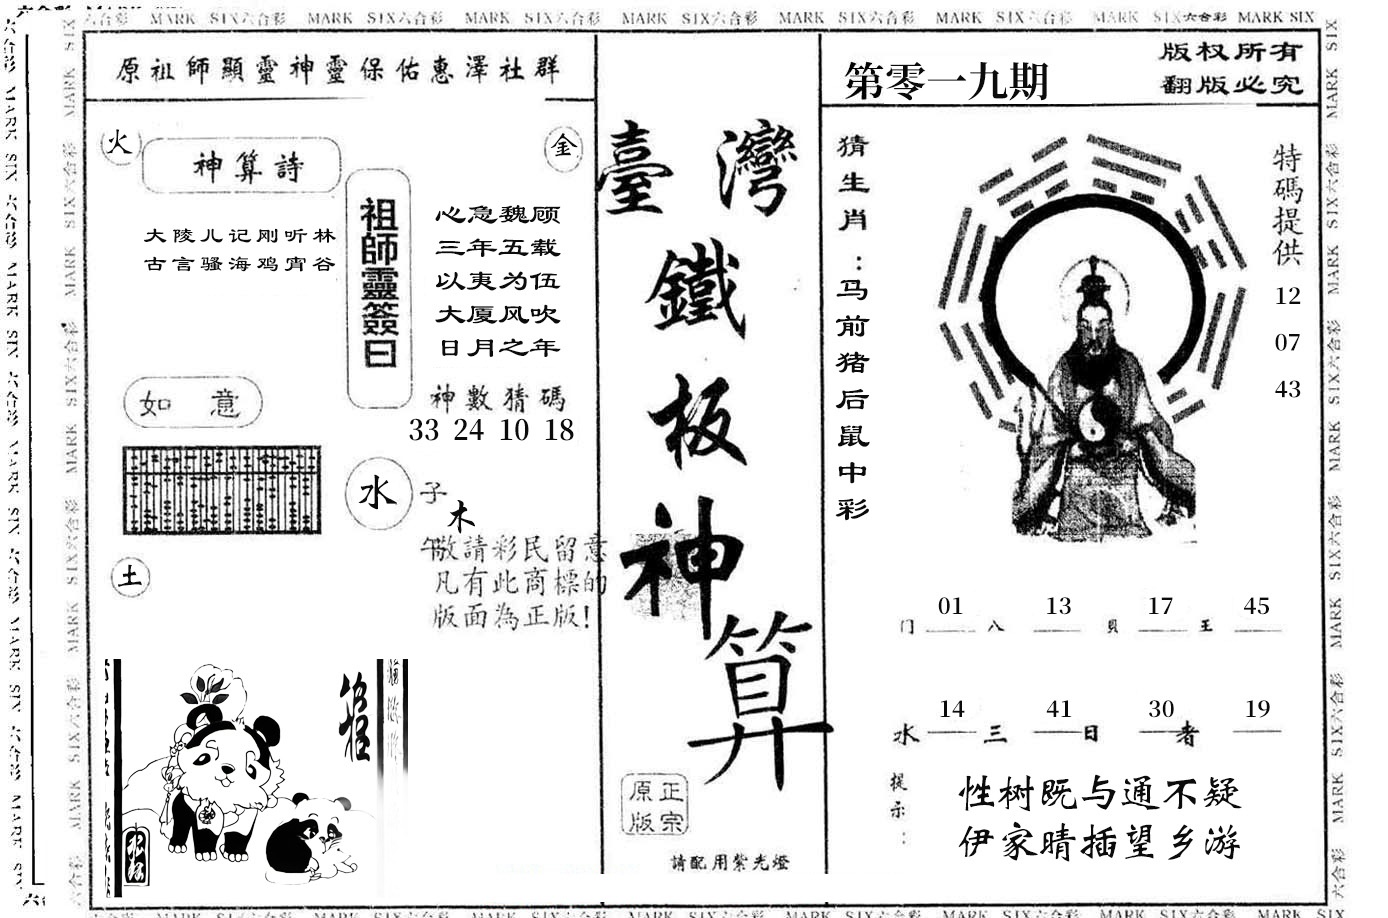 MARK SIX六合彩 MARK SIX六合彩 MARK SIX六合彩 MARK SIX六合彩 MARK SIX六合彩 MARK SIX六合彩 MARK SIX六合彩 MARK SIX
原祖師顯靈神靈保佑惠澤社群
火
金
神算詩
大陵儿记刚听林
古言骚海鸡宵谷
祖師靈簽曰
心急魏顾
三年五载
以夷为伍
大厦风吹
日月之年
神數猜碼
33 24 10 18
如意
水
子
木
午
土
敬請彩民留意
凡有此商標的
版面為正版!
臺灣
鐵
板
神
算
正宗
原版
請配用紫光燈
第零一九期
版权所有
翻版必究
猜生肖:马前猪后鼠中彩
特碼提供
12
07
43
01 13 17 45
门 八 贝 王
14 41 30 19
水 三 日 者
提示:
性树既与通不疑
伊家晴插望乡游